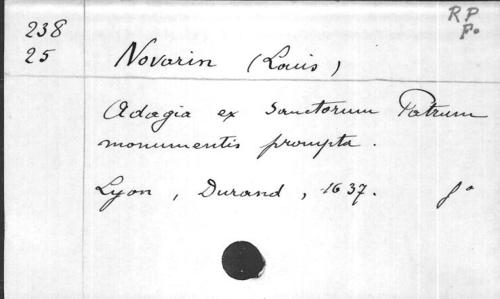 RP
F°
238
25
Novarin (Louis)
Adagia ex Sanctorum Patrum
monumentis prompta.
Lyon, Durand, 1637. f°